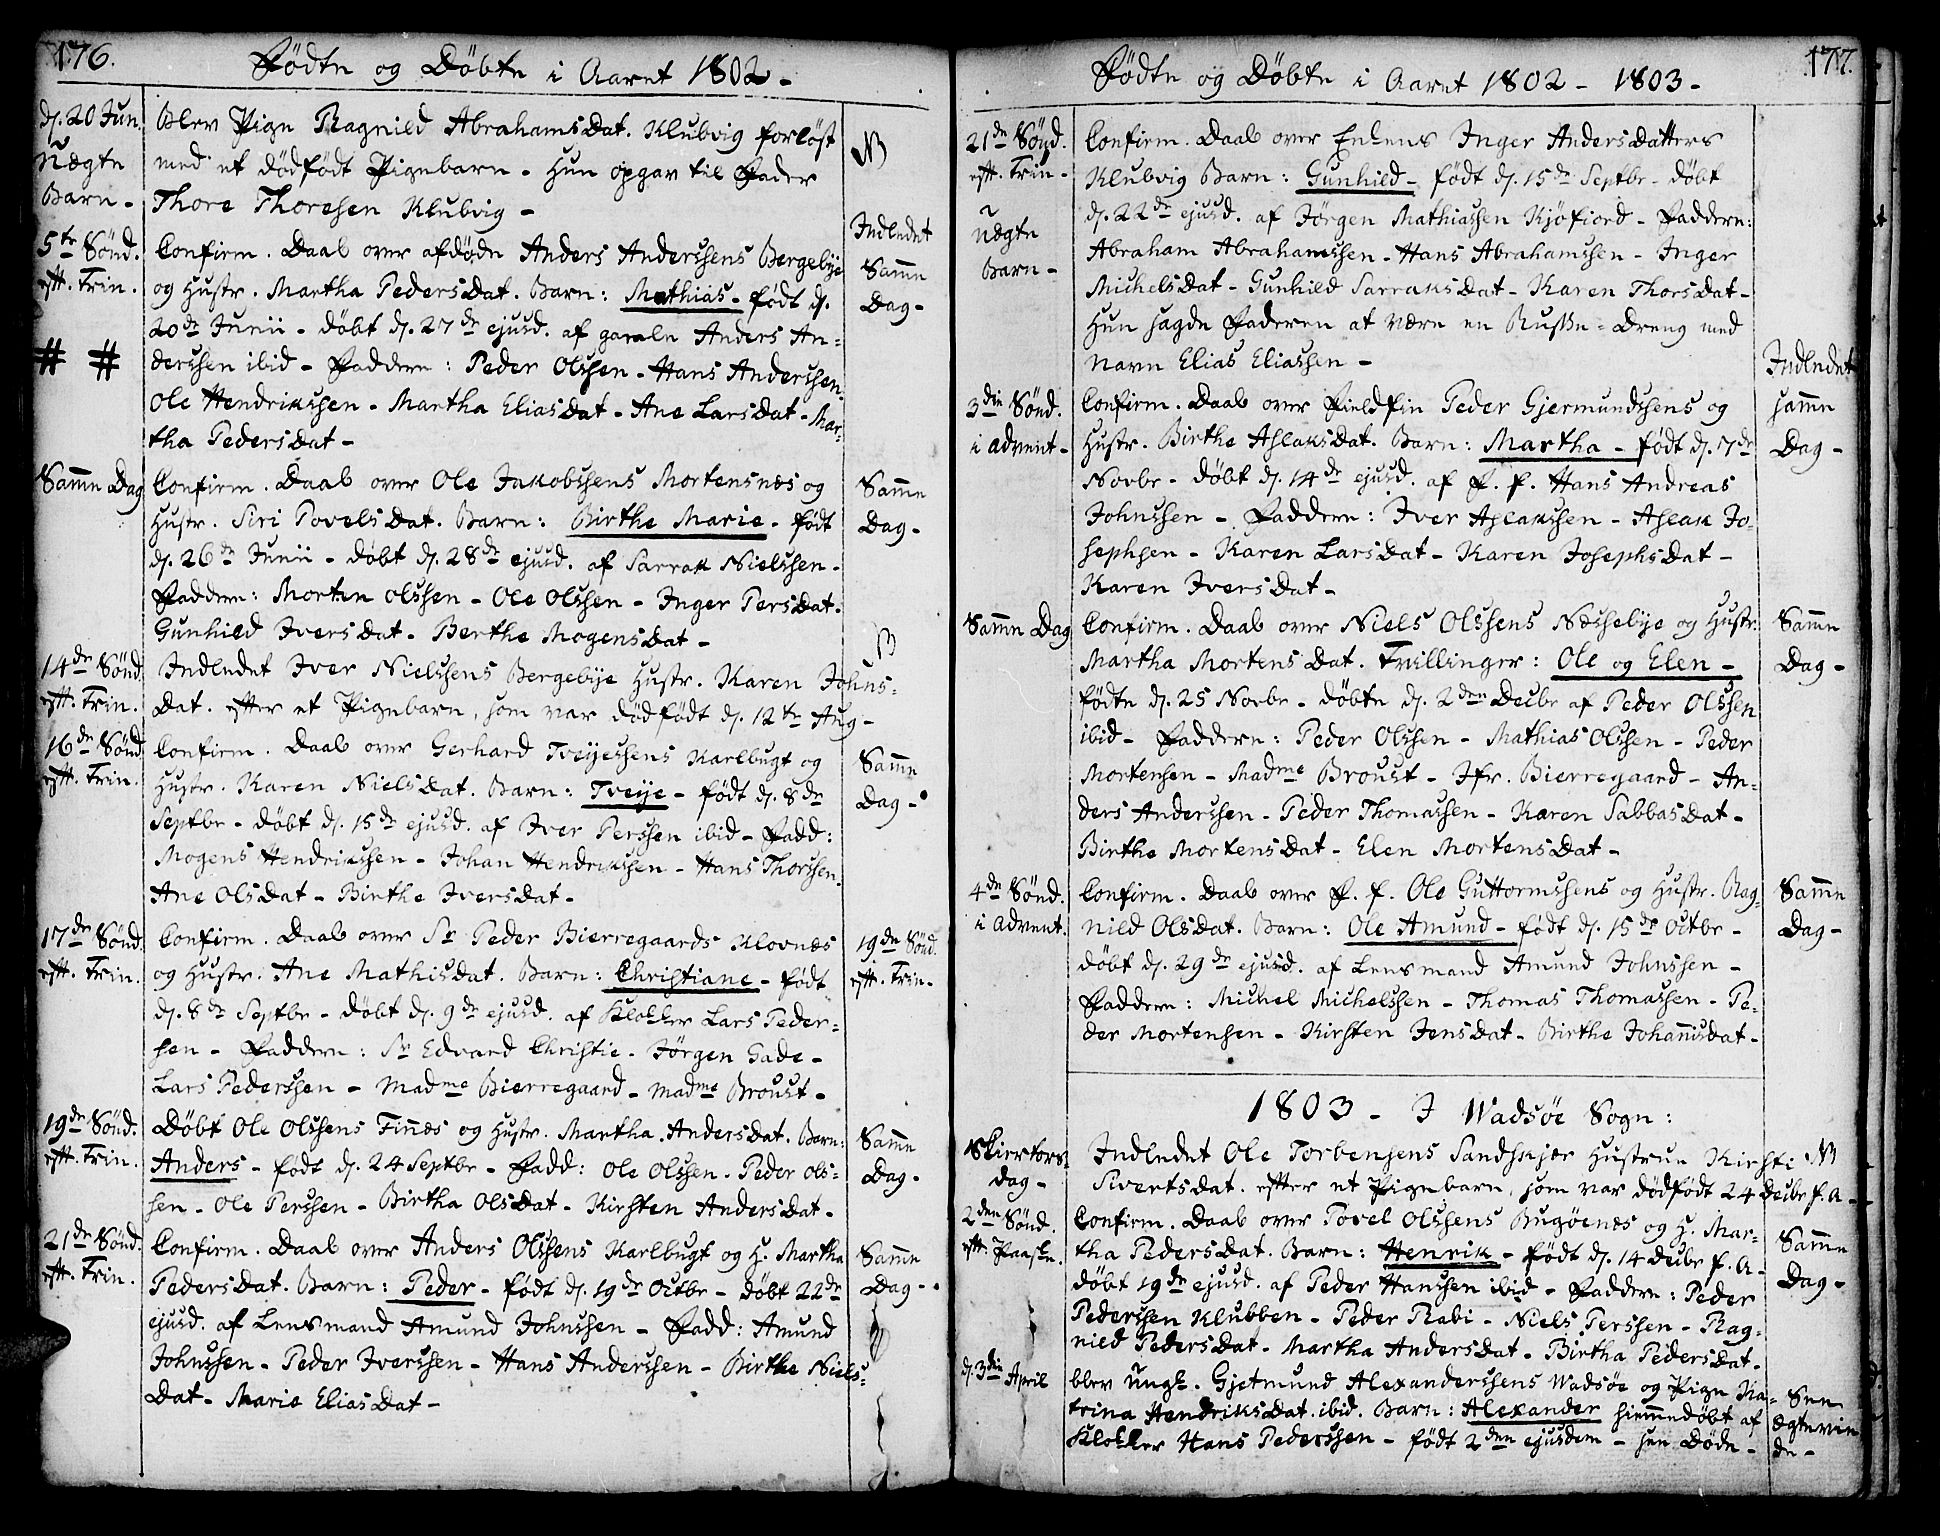 176.
Födte og Döbte i Aaret 1802 -
d. 20 Jun.
Uægte
Barn -
Blev Pige Ragnild AbrahamsDat. Klubvig forløst
med et dödfödt Pigebarn - Hun opgav til Fader
Thore Thoresen Klubvig -
NB
5te Sönd.
eft. Trin.
# #
Confirm. Daab over afdøde Anders Anderssens Bergebye
og Hustr. Martha PedersDat. Barn: Mathias - födt d.
20de Junii - döbt d. 27de ejusd. af gamle Anders An-
derssen ibid - Faddere: Peder Olssen - Hans Anderssen
Ole Hendrikssen - Martha EliasDat - Ane LarsDat - Mar-
tha PedersDat -
Indledet
Samme
Dag -
Samme Dag
Confirm. Daab over Ole Jakobssens Mortensnæs og
Hustr. Siri PovelsDat. Barn: Birthe Marie - födt
d. 26de Junii - döbt d. 28de ejusd. af Sarrak Nielssen -
Faddere: Morten Olssen - Ole Olssen - Inger PersDat.
Gunhild IversDat - Berthe MogensDat -
Samme
Dag -
14de Sönd.
eft. Trin.
Indledet Iver Nielssens Bergebye Hustr. Karen Johns-
Dat. efter et Pigebarn, som var dödfödt d. 12te Aug -
B
16de Sönd
eft. Trin.
Confirm. Daab over Gerhard Tveyessens Karlbugt og
Hustr. Karen NielsDat. Barn: Tveye - födt d. 8de
Septbr - döbt d. 15de ejusd. af Iver Perssen ibid - Fadd:
Mogens Hendrikssen - Johan Hendrikssen - Hans Thorssen.
Ane OlsDat - Birthe IversDat -
Samme
Dag -
17de Sönd.
eft. Trin.
Confirm. Daab over Sr Peder Bierregaards Klovnæs
og Hustr. Ane MathisDat. Barn: Christiane - födt
d. 8de Septbr - döbt d. 9de ejusd. af Klokker Lars Peder-
sen - Faddere: Sr Edvard Christie - Jörgen Gade -
Lars Pederssen - Madme Bierregaard - Madme Broust -
19de Sönd.
eft. Trin -
19de Sönd.
eft. Trin.
Döbt Ole Olssens Finnæs og Hustr. Martha AndersDat. Barn:
Anders - födt d. 24 Septbr - Fadd: Ole Olssen - Peder Ols-
sen - Ole Perssen - Birtha OlsDat - Kirsten AndersDat -
Samme
Dag -
21de Sönd.
eft. Trin.
Confirm. Daab over Anders Olssens Karlbugt og H. Martha
PedersDat. Barn: Peder - födt d. 19de Octbr - döbt 22de
ejusd. af Lensmand Amund Johnssen - Fadd: Amund
Johnssen - Peder Iverssen - Hans Anderssen - Birthe Niels-
Dat - Marie EliasDat -
Samme
Dag -
177.
Födte og Döbte i Aaret 1802 - 1803 -
21de Sönd.
eft. Trin -
Uægte
Barn -
Confirm. Daab over Enkens Inger AndersDatters
Klubvig Barn: Gunhild - födt d. 15de Septbr - döbt
d. 22de ejusd. af Jörgen Mathiassen Kjöfiord - Faddere:
Abraham Abrahamssen - Hans Abrahamssen - Inger
MichelsDat - Gunhild SarraksDat - Karen ThorsDat -
Hun sagde Faderen at være en Russe-Dreng med
Navn Elias Eliassen -
3die Sönd.
i Advent -
Confirm. Daab over Fieldfin Peder Gjermundssens og
Hustr. Birthe AslaksDat. Barn: Martha - födt d. 7de
Novbr - döbt d. 14de ejusd. af F. f. Hans Andreas
Johnssen - Faddere: Iver Aslakssen - Aslak Jo-
sephsen - Karen LarsDat - Karen JosephsDat -
Karen IversDat -
Indledet
samme
Dag -
Samme Dag
Confirm. Daab over Niels Olssens Næssebye og Hustr.
Martha MortensDat. Tvillinger: Ole og Elen -
födte d. 25 Novbr - döbte d. 2den Decbr af Peder Olssen
ibid - Faddere: Peder Olssen - Mathias Olssen - Peder
Mortensen - Madme Broust - Jfr. Bierregaard - An-
ders Anderssen - Peder Thomassen - Karen SabbasDat -
Birthe MortensDat - Elen MortensDat -
Samme
Dag -
4de Sönd.
i Advent.
Confirm. Daab over F. f. Ole Guttormssens og Hustr. Rag-
nild OlsDat. Barn: Ole Amund - födt d. 15de Octbr -
döbt d. 29de ejusd. af Lensmand Amund Johnssen -
Faddere: Michel Michelssen - Thomas Thomassen - Pe-
der Mortensen - Kirsten JensDat - Birthe Johannisdat -
Samme
Dag -
1803 - I Wadsöe Sogn:
Skiertors-
dag -
Indledet Ole Torbensens Sandskjær Hustrue Kirsti
Sivertsdat. efter et Pigebarn, som var dödfödt 24 Decbr f. A -
NB
2den Sönd.
eft. Paaske.
Confirm. Daab over Povel Olssens Bugöenæs og H. Mar-
tha PedersDat. Barn: Henrik - födt d. 14 Decbr f. A -
döbt 19de ejusd. af Peder Hanssen ibid - Faddere: Peder
Pederssen Klubben - Peder Rabi - Niels Perssen - Rag-
nild PedersDat - Martha AndersDat - Birtha PedersDat -
Samme
Dag -
d. 3die April
blev Ungk. Gjetmund Alexanderssens Wadsöe og Pige Ka-
trina HendriksDat. ibid. Barn: Alexander hiemmedöbt af
Klokker Hans Pederssen - födt 2den ejusdem - sen Döde -
See
Ægtevie
de -